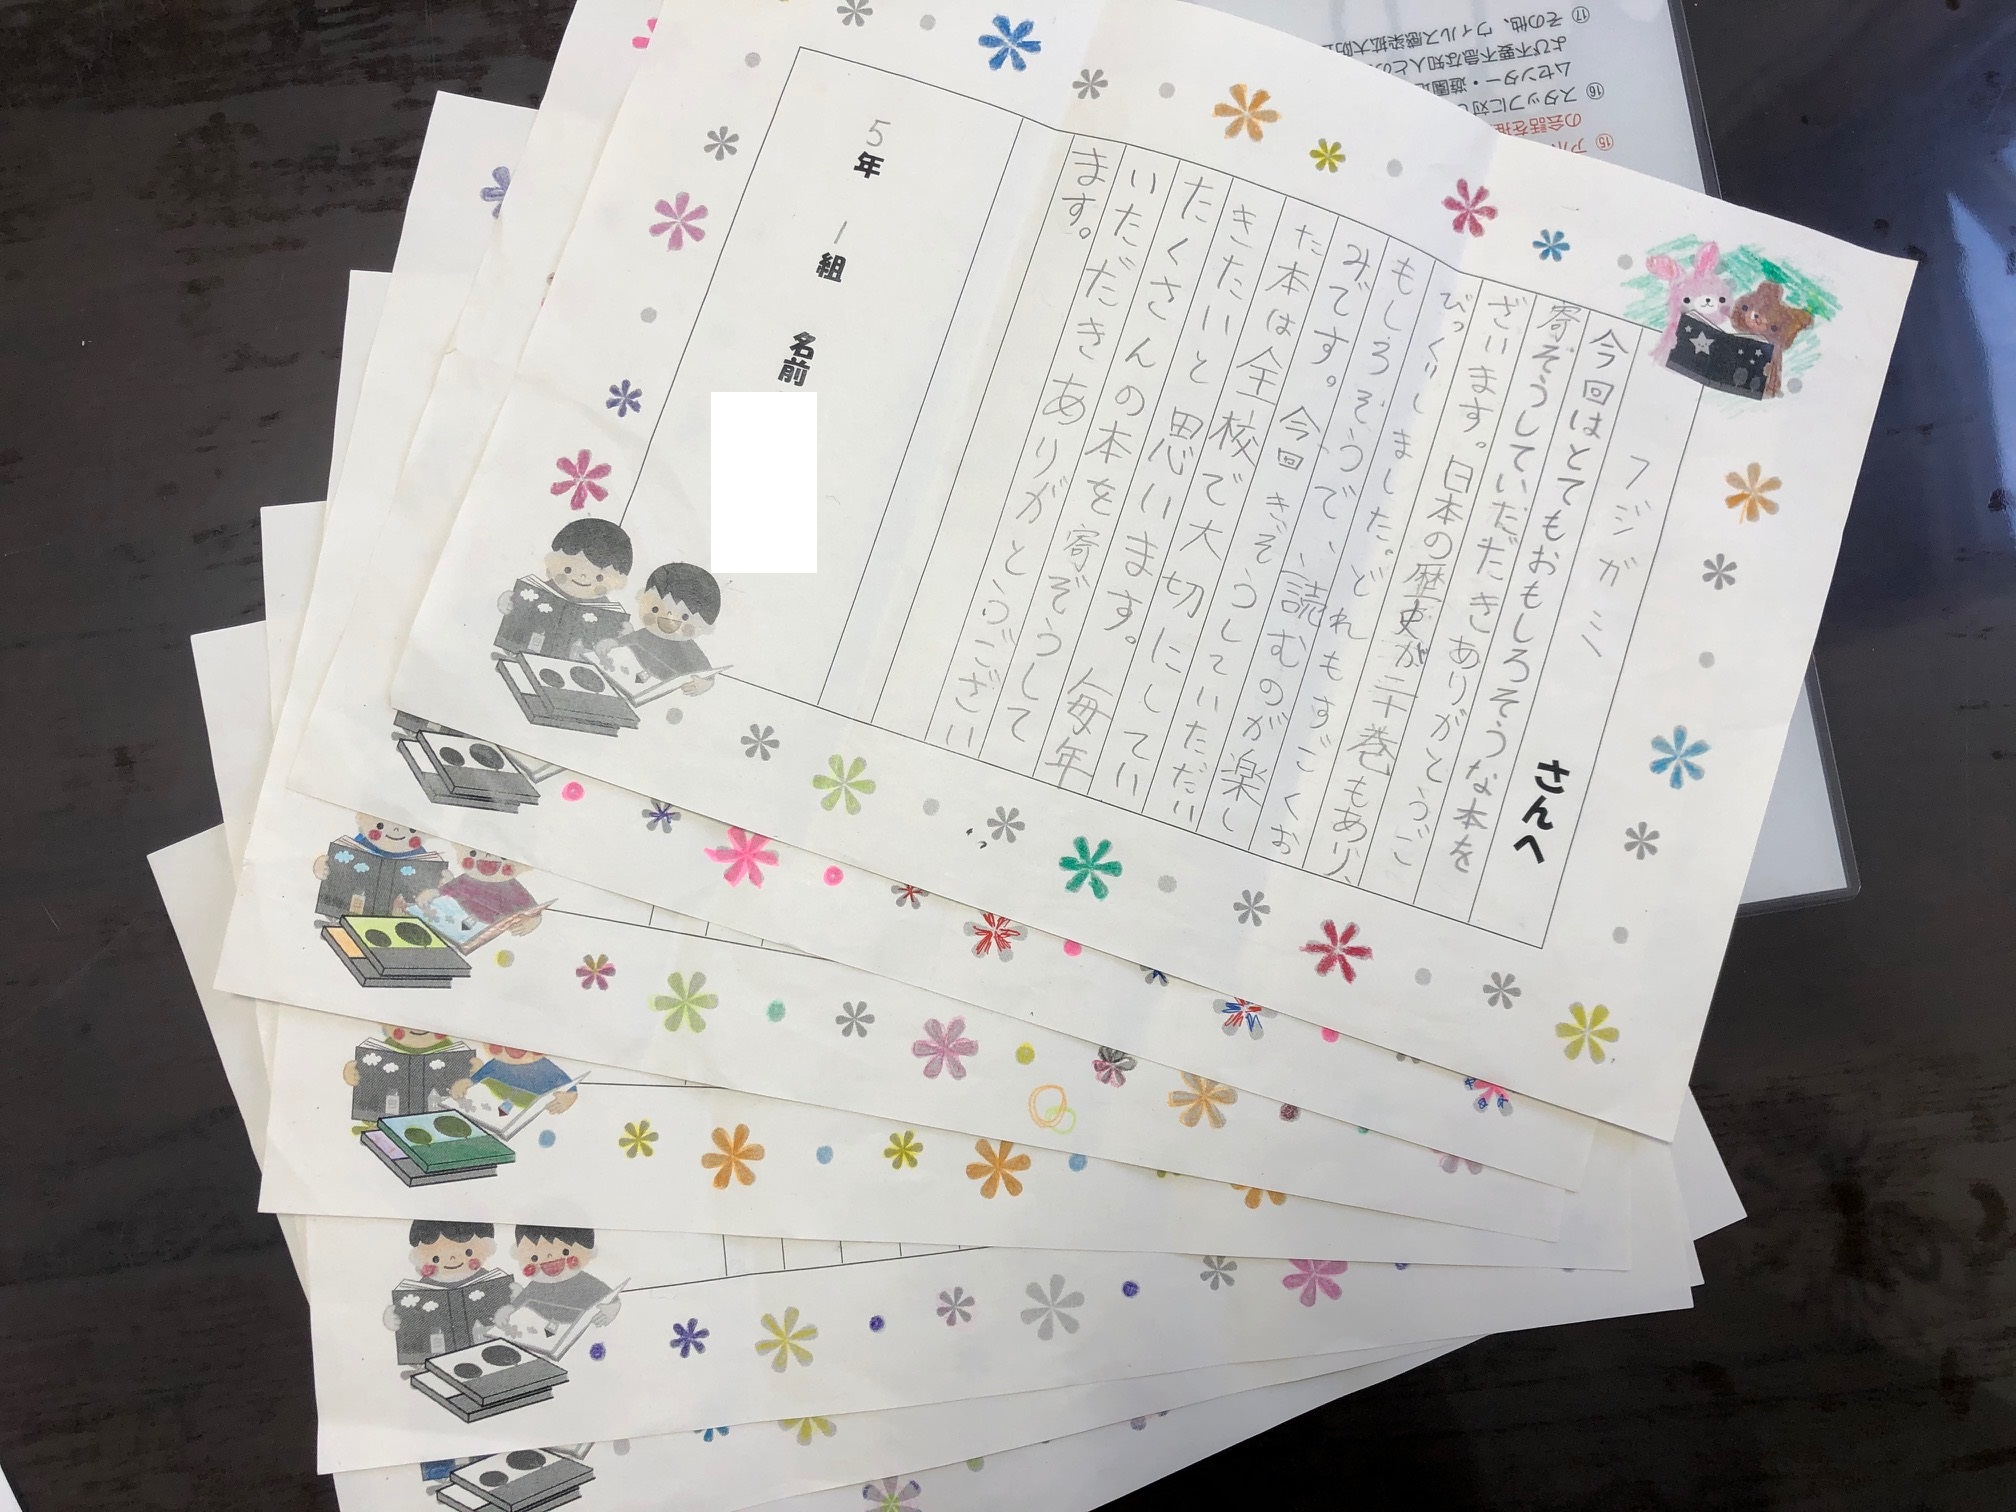 フジガミ さんへ
今回はとてもおもしろそうな本を
寄ぞうしていだだききありがとうご
ざいます。日本の歴史が二十巻もあり、
びっくりしました。どれもすごくお
もしろそうで、読むのが楽し
みです。今回きぞうしていただい
た本は全校で大切にしてい
きたいと思います。毎年
たくさんの本を寄ぞうして
いただきありがとうござい
ます。
5年 1組 名前
⑮
の会話を
⑯ スタッフに対し
ムセンター・遊園地
よび不要不急な知人との
⑰ その他、ウィルス感染拡大防止